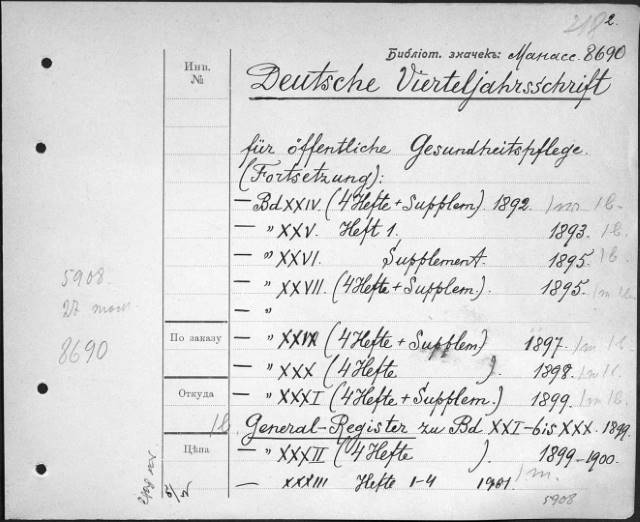 2.
Библіот. значекъ: Манасс. 8690
Инв.
№
Deutsche Vierteljahrsschrift
für öffentliche Gesundheitspflege.
(Fortsetzung):
— Bd XXIV. (4 Hefte + Supplem). 1892.
— " XXV. Heft 1. 1893. 1 b.
— " XXVI. Supplement. 1895. 1 b.
— " XXVII. (4 Hefte + Supplem.) 1895.
— "
5908.
27
8690
По заказу
— " XXIX (4 Hefte + Supplem) 1897.
— " XXX (4 Hefte ). 1898.
Откуда
— " XXXI (4 Hefte + Supplem.) 1899.
1 b. General-Register zu Bd. XXI-bis XXX. 1899.
Цѣна
— " XXXII (4 Hefte ). 1899-1900.
— XXXIII Hefte 1-4 1901.
5908